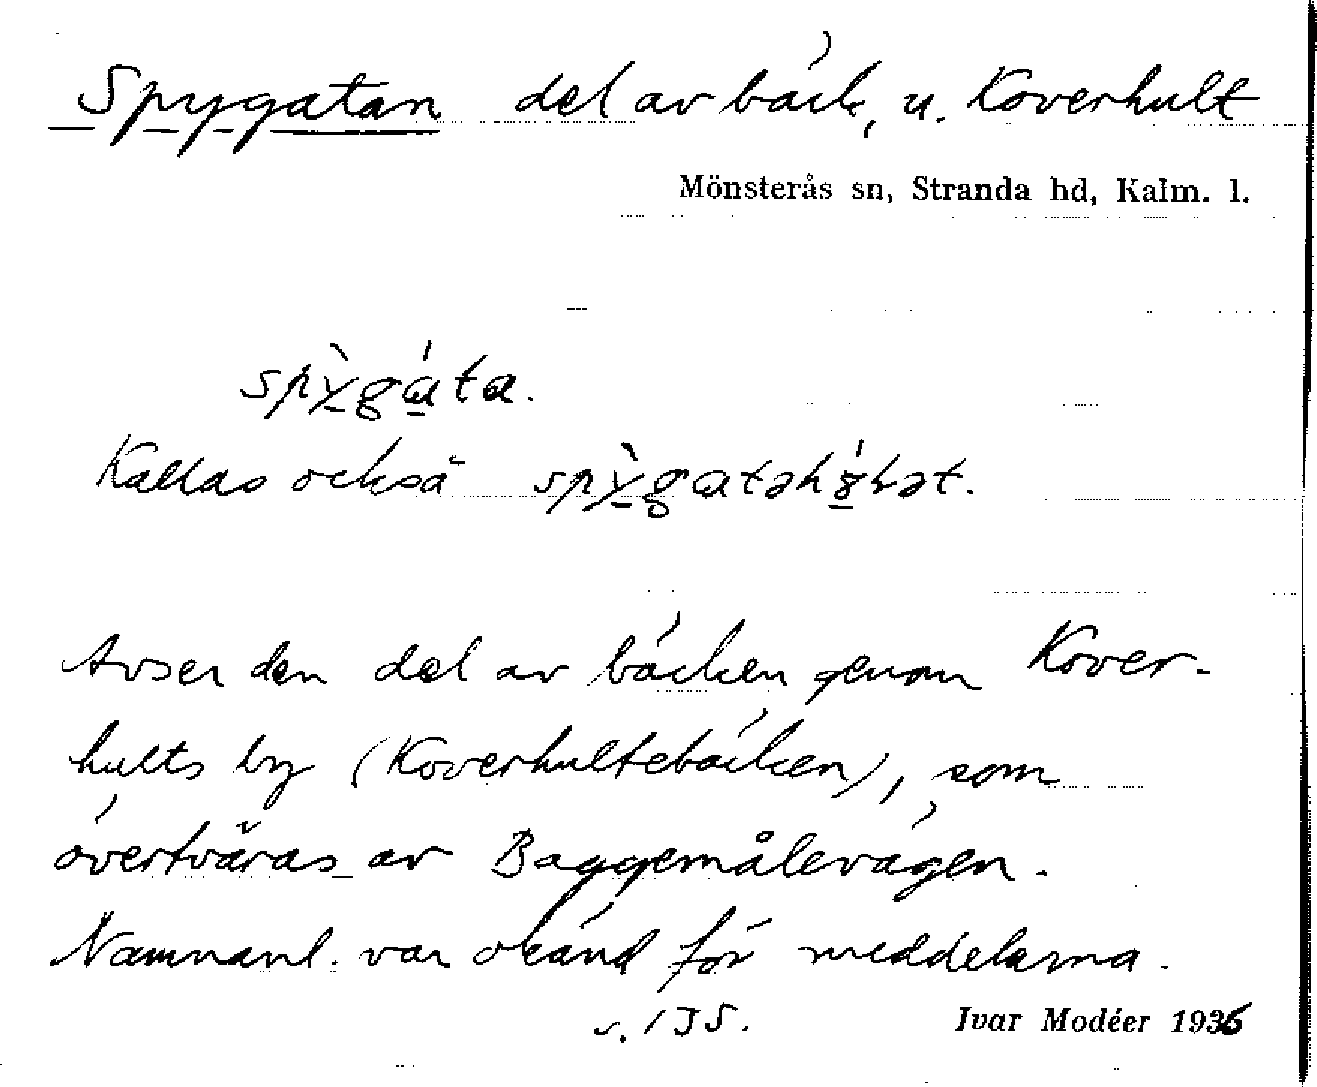 Spygatan del av bäck, u. Koverhult
Mönsterås sn, Stranda hd, Kalm. l.
spỳgáta.
Kallas också spỳgatəhɣ́lət.
Avser den del av bäcken genom Kover-
hults by (Koverhultebäcken), som
övertväras av Baggemålevägen.
Namnanl. var okänd för meddelarna.
s. 135. Ivar Modéer 1936